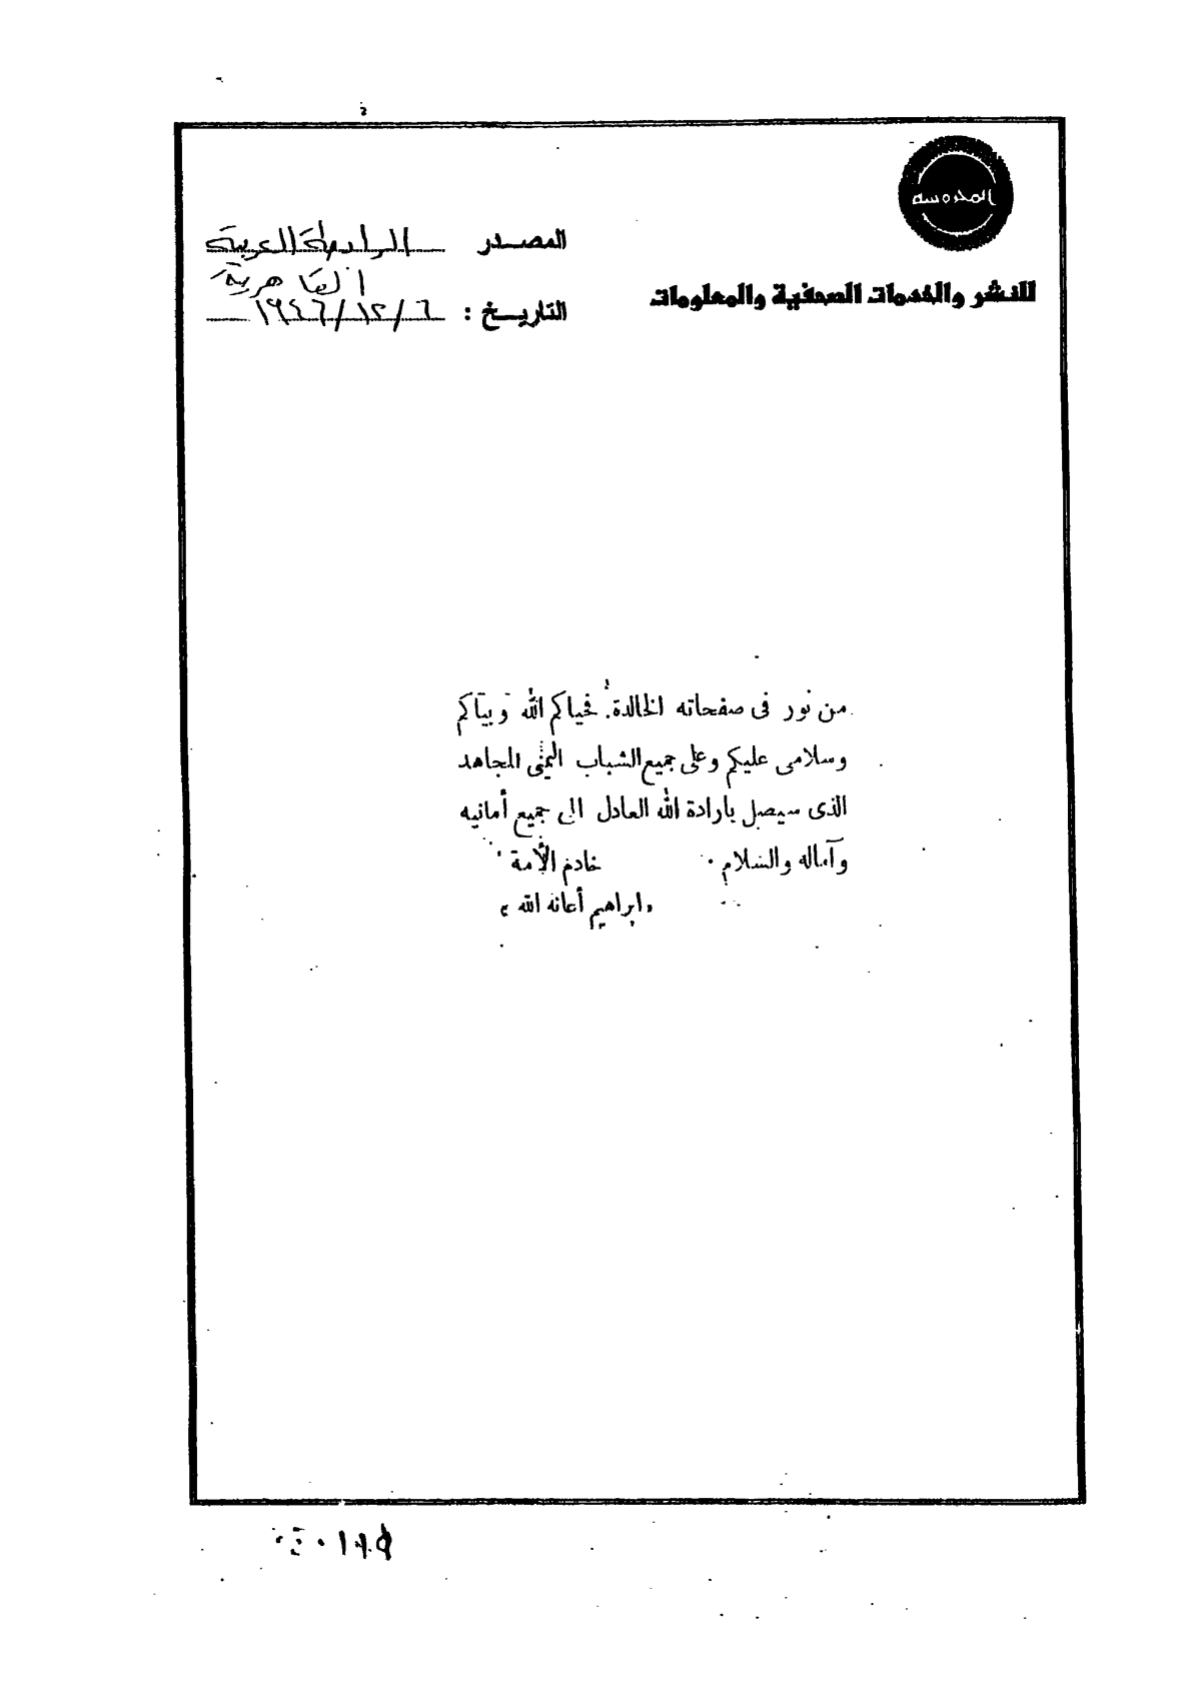 المحروسة
للنشر والخدمات الصحفية والمعلومات
المصدر الرابطة العربية
القاهرية
التاريخ : ٦/١٢/١٩٤٦
من نور فى صفحاته الخالدة. فحياكم الله وبيّاكم
وسلامى عليكم وعلى جميع الشباب اليمنى المجاهد
الذى سيصل بارادة الله العادل الى جميع أمانيه
وآماله والسلام . خادم الأمة
«ابراهيم أعانه الله»